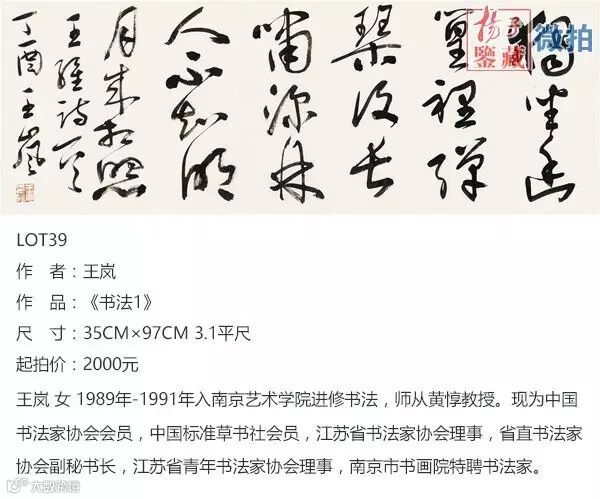 獨坐幽
篁裡彈
琴復長
嘯深林
人不知明
月来相照
王維詩
丁酉王嵐
扬子
鉴藏
微拍
LOT39
作 者：王岚
作 品：《书法1》
尺 寸：35CM×97CM 3.1平尺
起拍价：2000元
王岚 女 1989年-1991年入南京艺术学院进修书法，师从黄惇教授。现为中国
书法家协会会员，中国标准草书社会员，江苏省书法家协会理事，省直书法家
协会副秘书长，江苏省青年书法家协会理事，南京市书画院特聘书法家。
大数跨境